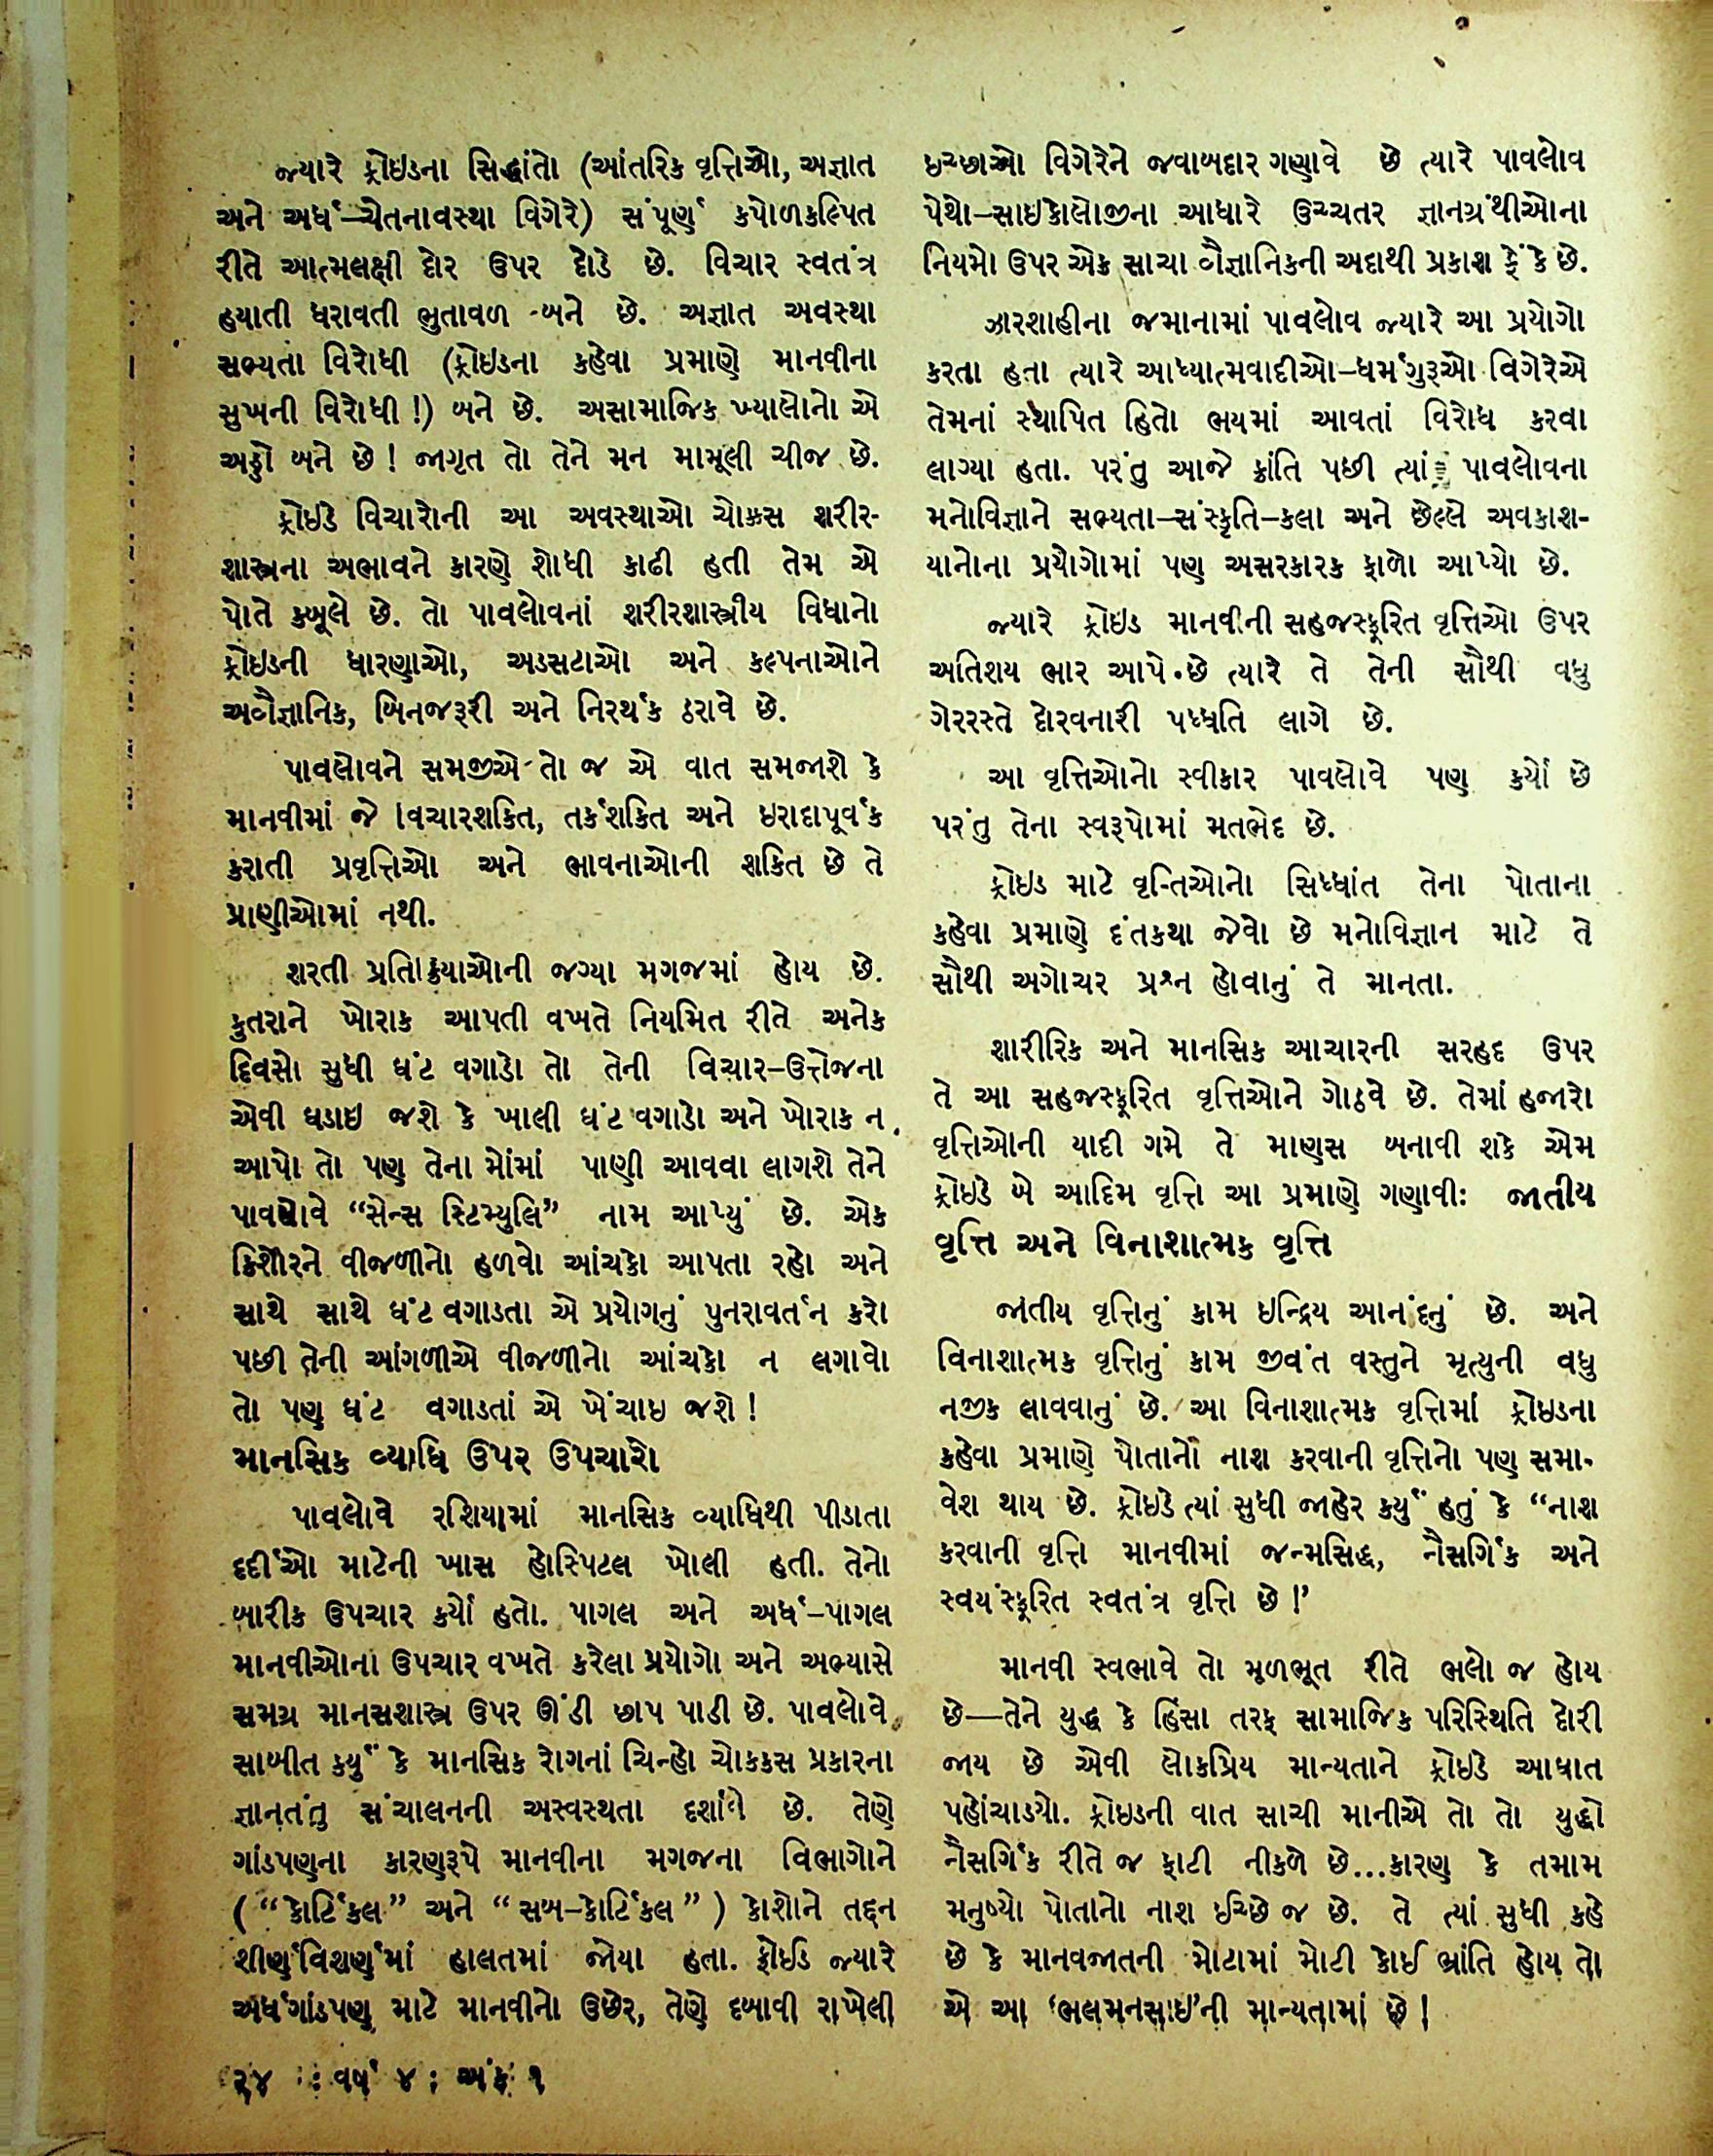 જ્યારે ફ્રોઇડના સિદ્ધાંતો (આંતરિક વૃત્તિઓ, અજ્ઞાત
અને અર્ધ-ચેતનાવસ્થા વિગેરે) સંપૂર્ણ કપોળકલ્પિત
રીતે આત્મલક્ષી દોર ઉપર દોડે છે. વિચાર સ્વતંત્ર
હયાતી ધરાવતી ભુતાવળ બને છે. અજ્ઞાત અવસ્થા
સભ્યતા વિરોધી (ફ્રોઇડના કહેવા પ્રમાણે માનવીના
સુખની વિરોધી !) બને છે. અસામાજિક ખ્યાલોનો એ
અડ્ડો બને છે ! જાગૃત તો તેને મન મામૂલી ચીજ છે.
ફ્રોઈડે વિચારોની આ અવસ્થાઓ ચોક્કસ શરીર-
શાસ્ત્રના અભાવને કારણે શોધી કાઢી હતી તેમ એ
પોતે કબૂલે છે. તો પાવલોવનાં શરીરશાસ્ત્રીય વિધાનો
ફ્રોઇડની ધારણાઓ, અડસટાઓ અને કલ્પનાઓને
અવૈજ્ઞાનિક, બિનજરૂરી અને નિરર્થક ઠરાવે છે.
પાવલોવને સમજીએ તો જ એ વાત સમજાશે કે
માનવીમાં જે વિચારશકિત, તર્કશકિત અને ઇરાદાપૂર્વક
કરાતી પ્રવૃત્તિઓ અને ભાવનાઓની શકિત છે તે
પ્રાણીઓમાં નથી.
શરતી પ્રતિક્રિયાઓની જગ્યા મગજમાં હોય છે.
કુતરાને ખોરાક આપતી વખતે નિયમિત રીતે અનેક
દિવસો સુધી ઘંટ વગાડો તો તેની વિચાર-ઉત્તેજના
એવી ઘડાઇ જશે કે ખાલી ઘંટ વગાડો અને ખોરાક ન
આપો તો પણ તેના મોંમાં પાણી આવવા લાગશે તેને
પાવલોવે “સેન્સ સ્ટિમ્યુલિ” નામ આપ્યું છે. એક
કિશોરને વીજળીનો હળવો આંચકો આપતા રહો અને
સાથે સાથે ઘંટ વગાડતા એ પ્રયોગનું પુનરાવર્તન કરો
પછી તેની આંગળીએ વીજળીનો આંચકો ન લગાવો
તો પણ ઘંટ વગાડતાં એ ખેંચાઇ જશે !
માનસિક વ્યાધિ ઉપર ઉપચારો
પાવલોવે રશિયામાં માનસિક વ્યાધિથી પીડાતા
દર્દીઓ માટેની ખાસ હોસ્પિટલ ખોલી હતી. તેનો
બારીક ઉપચાર કર્યો હતો. પાગલ અને અર્ધ-પાગલ
માનવીઓના ઉપચાર વખતે કરેલા પ્રયોગો અને અભ્યાસે
સમગ્ર માનસશાસ્ત્ર ઉપર ઊંડી છાપ પાડી છે. પાવલોવે
સાબીત કર્યું કે માનસિક રોગનાં ચિન્હો ચોકકસ પ્રકારના
જ્ઞાનતંતુ સંચાલનની અસ્વસ્થતા દર્શાવે છે. તેણે
ગાંડપણના કારણરૂપે માનવીના મગજના વિભાગોને
(“કોર્ટિકલ” અને “સબ-કોર્ટિકલ”) કોશોને તદ્દન
શીર્ણવિશીર્ણમાં હાલતમાં જોયા હતા. ફ્રોઈડ જ્યારે
અર્ધગાંડપણ માટે માનવીનો ઉછેર, તેણે દબાવી રાખેલી
ઇચ્છાઓ વિગેરેને જવાબદાર ગણાવે છે ત્યારે પાવલોવ
પેથો-સાઇકોલોજીના આધારે ઉચ્ચતર જ્ઞાનગ્રંથીઓના
નિયમો ઉપર એક સાચા વૈજ્ઞાનિકની અદાથી પ્રકાશ ફેંકે છે.
ઝારશાહીના જમાનામાં પાવલોવ જ્યારે આ પ્રયોગો
કરતા હતા ત્યારે આધ્યાત્મવાદીઓ-ધર્મગુરૂઓ વિગેરેએ
તેમનાં સ્થાપિત હિતો ભયમાં આવતાં વિરોધ કરવા
લાગ્યા હતા. પરંતુ આજે ક્રાંતિ પછી ત્યાં પાવલોવના
મનોવિજ્ઞાને સભ્યતા-સંસ્કૃતિ-કલા અને છેલ્લે અવકાશ-
યાનોના પ્રયોગોમાં પણ અસરકારક ફાળો આપ્યો છે.
જ્યારે ફ્રોઇડ માનવીની સહજસ્ફુરિત વૃત્તિઓ ઉપર
અતિશય ભાર આપે છે ત્યારે તે તેની સૌથી વધુ
ગેરરસ્તે દોરવનારી પધ્ધતિ લાગે છે.
આ વૃત્તિઓનો સ્વીકાર પાવલોવે પણ કર્યો છે
પરંતુ તેના સ્વરૂપોમાં મતભેદ છે.
ફ્રોઇડ માટે વૃન્તિઓનો સિધ્ધાંત તેના પોતાના
કહેવા પ્રમાણે દંતકથા જેવો છે મનોવિજ્ઞાન માટે તે
સૌથી અગોચર પ્રશ્ન હોવાનું તે માનતા.
શારીરિક અને માનસિક આચારની સરહદ ઉપર
તે આ સહજસ્ફુરિત વૃત્તિઓને ગોઠવે છે. તેમાં હજારો
વૃત્તિઓની યાદી ગમે તે માણસ બનાવી શકે એમ
ફ્રોઇડે બે આદિમ વૃત્તિ આ પ્રમાણે ગણાવી: જાતીય
વૃત્તિ અને વિનાશાત્મક વૃત્તિ
જાતીય વૃત્તિનું કામ ઇન્દ્રિય આનંદનું છે. અને
વિનાશાત્મક વૃત્તિનું કામ જીવંત વસ્તુને મૃત્યુની વધુ
નજીક લાવવાનું છે. આ વિનાશાત્મક વૃત્તિમાં ફ્રોઇડના
કહેવા પ્રમાણે પોતાનો નાશ કરવાની વૃત્તિનો પણ સમા-
વેશ થાય છે. ફ્રોઇડે ત્યાં સુધી જાહેર કર્યું હતું કે “નાશ
કરવાની વૃત્તિ માનવીમાં જન્મસિદ્ધ, નૈસર્ગિક અને
સ્વયંસ્ફુરિત સ્વતંત્ર વૃત્તિ છે !’
માનવી સ્વભાવે તો મૂળભૂત રીતે ભલો જ હોય
છે—તેને યુદ્ધ કે હિંસા તરફ સામાજિક પરિસ્થિતિ દોરી
જાય છે એવી લોકપ્રિય માન્યતાને ફ્રોઇડે આઘાત
પહોંચાડયો. ફ્રોઇડની વાત સાચી માનીએ તો તો યુદ્ધો
નૈસર્ગિક રીતે જ ફાટી નીકળે છે...કારણ કે તમામ
મનુષ્યો પોતાનો નાશ ઈચ્છે જ છે. તે ત્યાં સુધી કહે
છે કે માનવજાતની મોટામાં મોટી કોઈ ભ્રાંતિ હોય તો
એ આ ‘ભલમનસાઇ’ની માન્યતામાં છે !
૨૪ : વર્ષ ૪ : અંક ૧